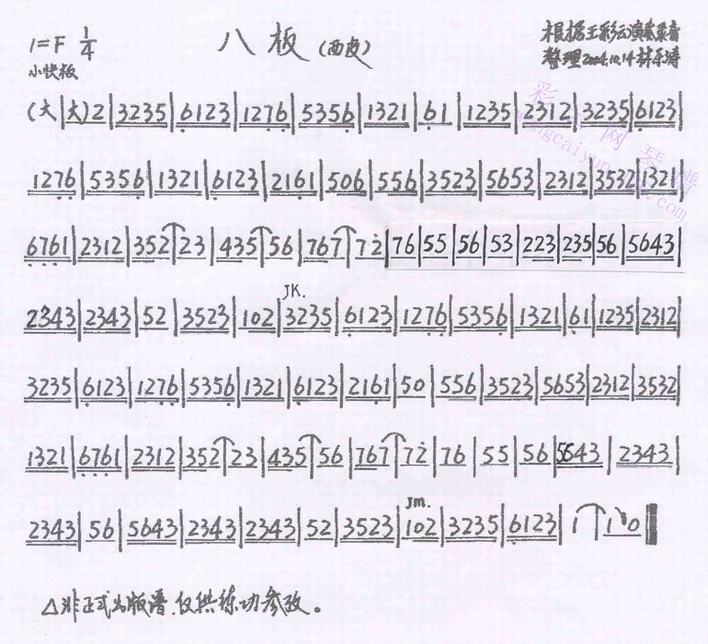 1=F 1/4 八板 (西皮) 根据王彩云演奏录音
小快板 整理2004.10.14
(大|大)2|3235|6123|1276|5356|1321|61|1235|2312|3235|6123|
1276|5356|1321|6123|2161|506|556|3523|5653|2312|3532|1321|
6761|2312|352|23|435|56|767|72|76|55|56|53|223|235|56|5643|
JK.
2343|2343|52|3523|102|3235|6123|1276|5356|1321|61|1235|2312|
3235|6123|1276|5356|1321|6123|2161|50|556|3523|5653|2312|3532|
1321|6761|2312|352|23|435|56|767|72|76|55|56|5543|2343|
Jm.
2343|56|5643|2343|2343|52|3523|102|3235|6123|1|10
△非正式出版谱,仅供练功参考。